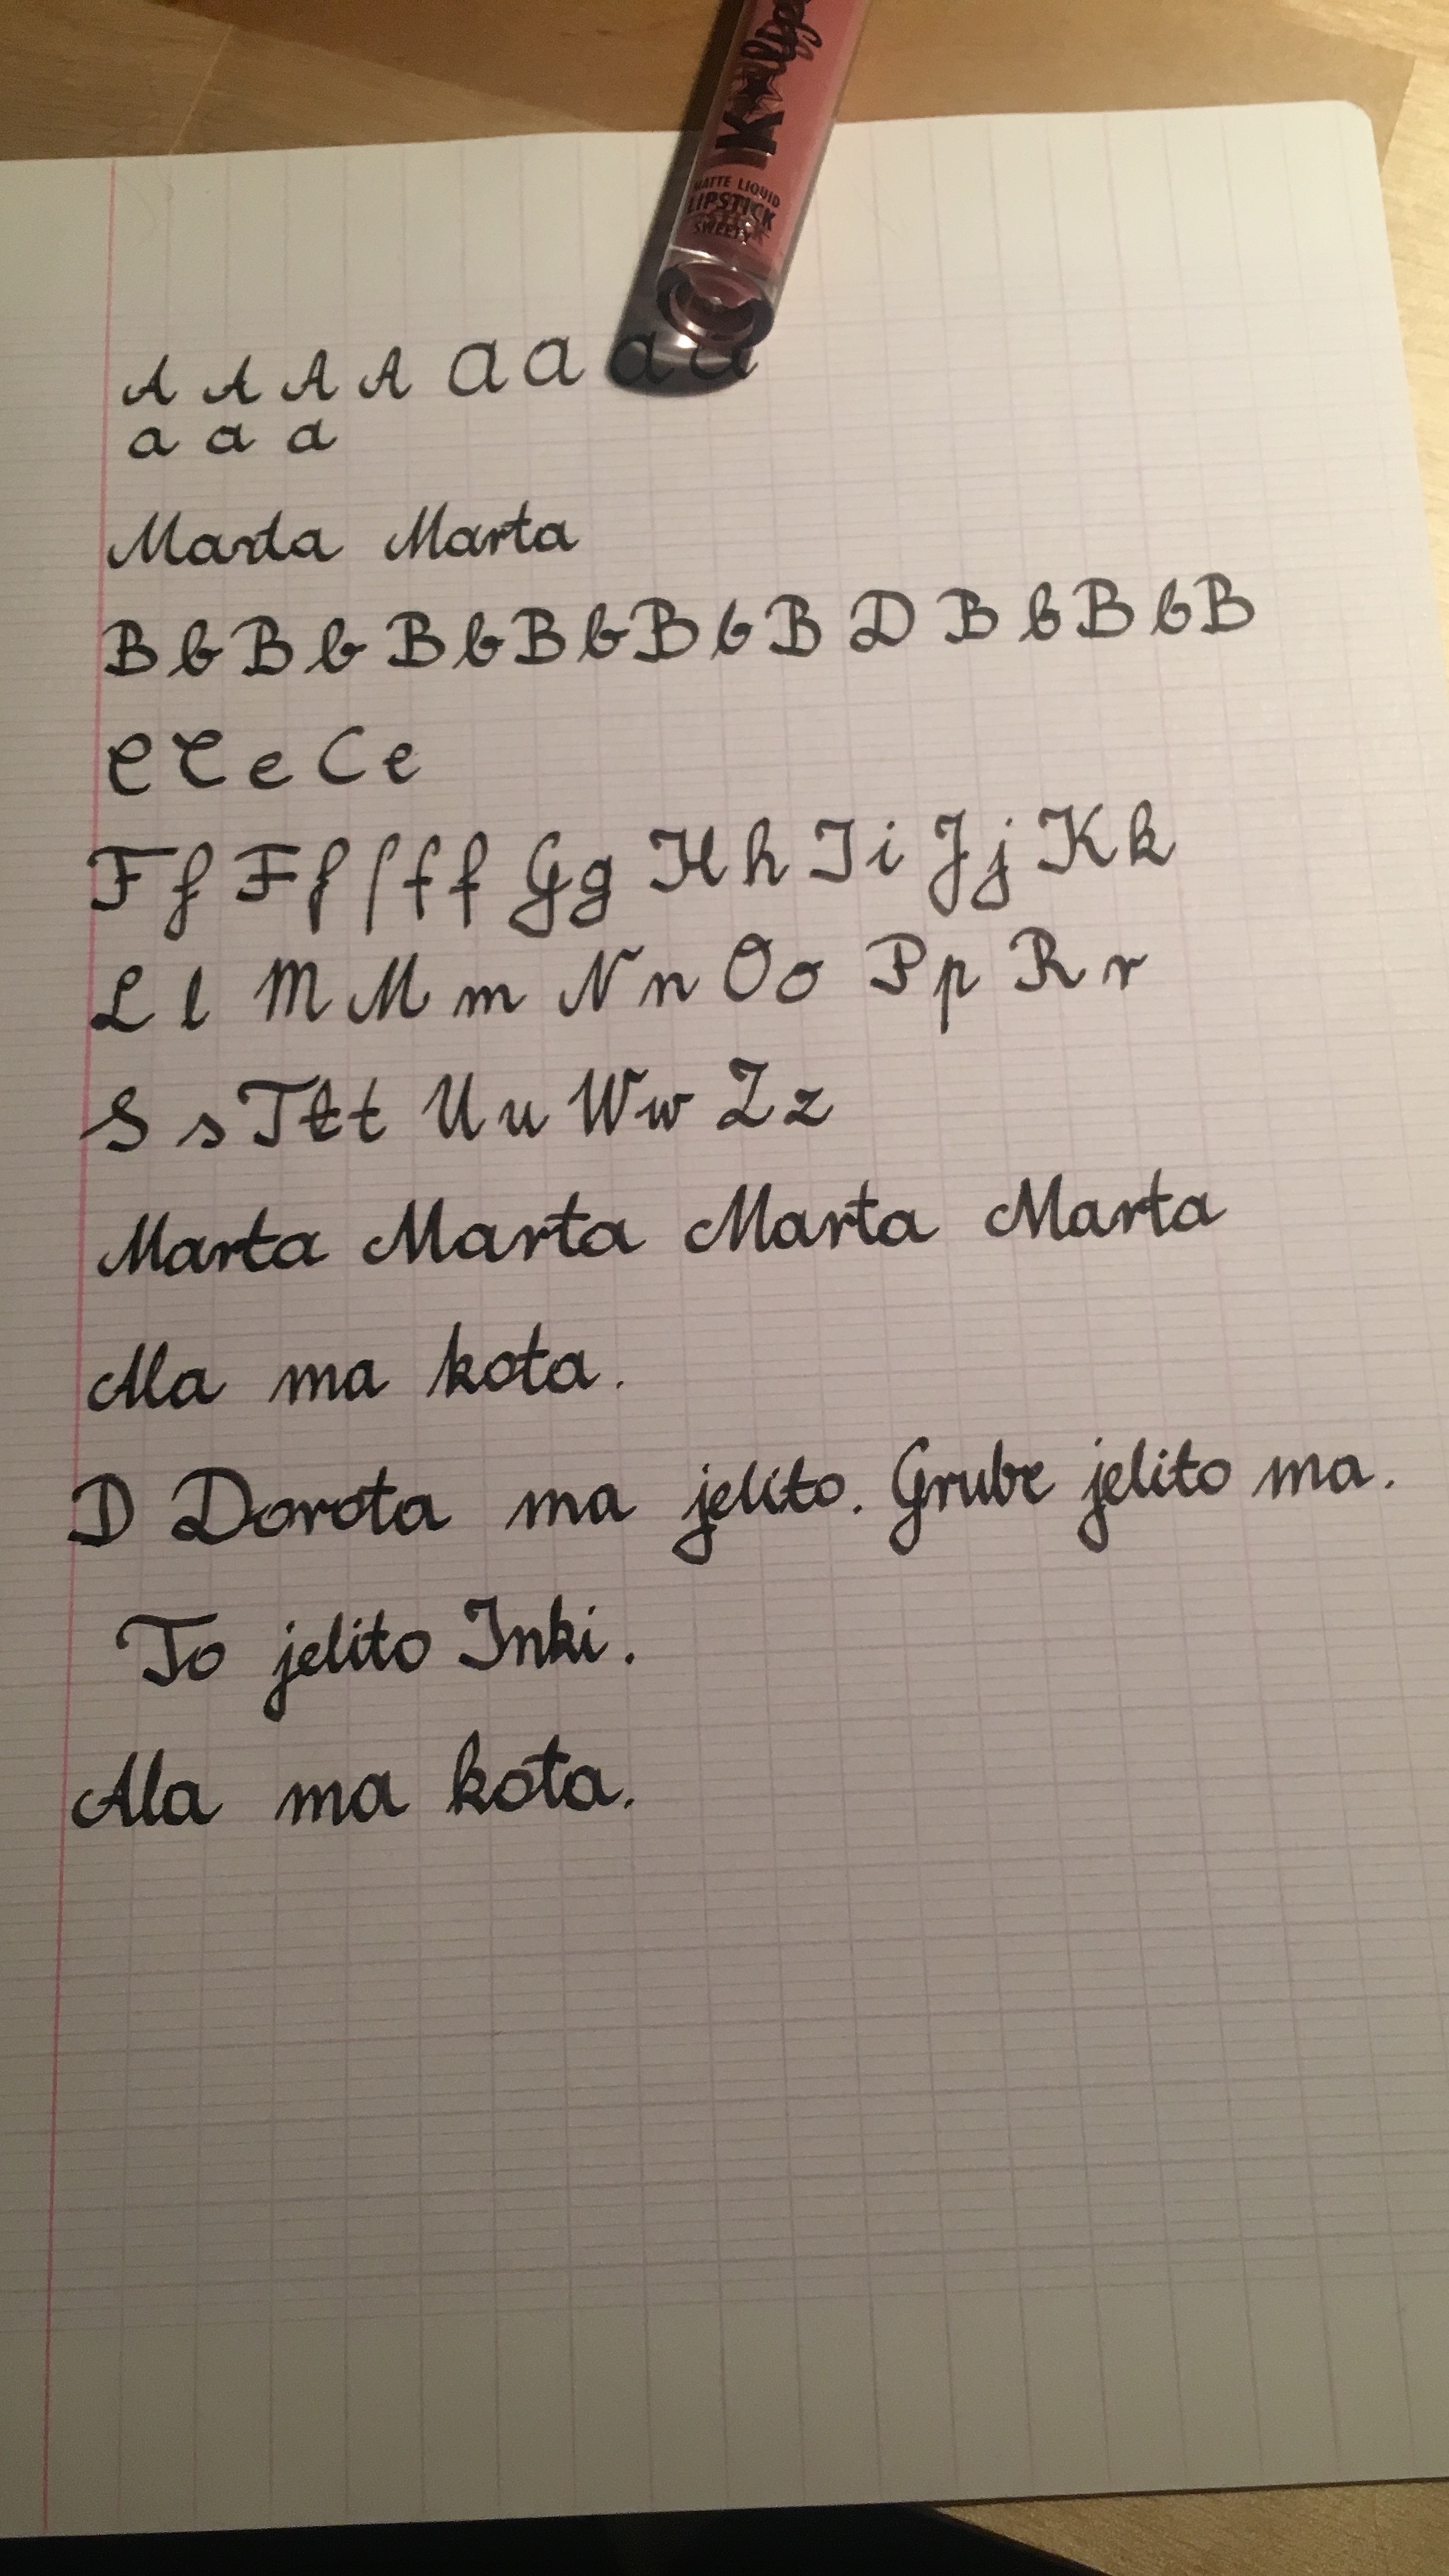 K★lips
MATTE LIQUID
LIPSTICK
SWEETY
A A A A a a a a
a a a
Marta Marta
B b B b B b B b B b B D B b B b B
C C e C e
F f F f f f f G g H h I i J j K k
L l M M m N n O o P p R r
S s T t t U u W w Z z
Marta Marta Marta Marta
Ala ma kota.
D Dorota ma jelito. Grube jelito ma.
To jelito Inki.
Ala ma kota.